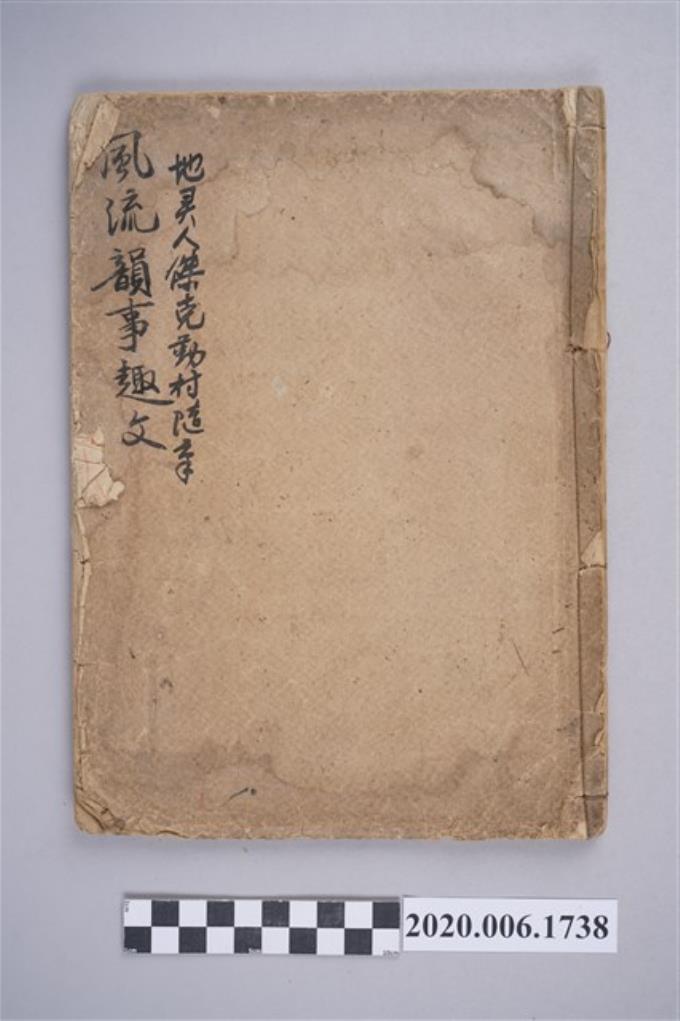 地灵人傑克勤村隨拿
風流韻事趣文
2020.006.1738